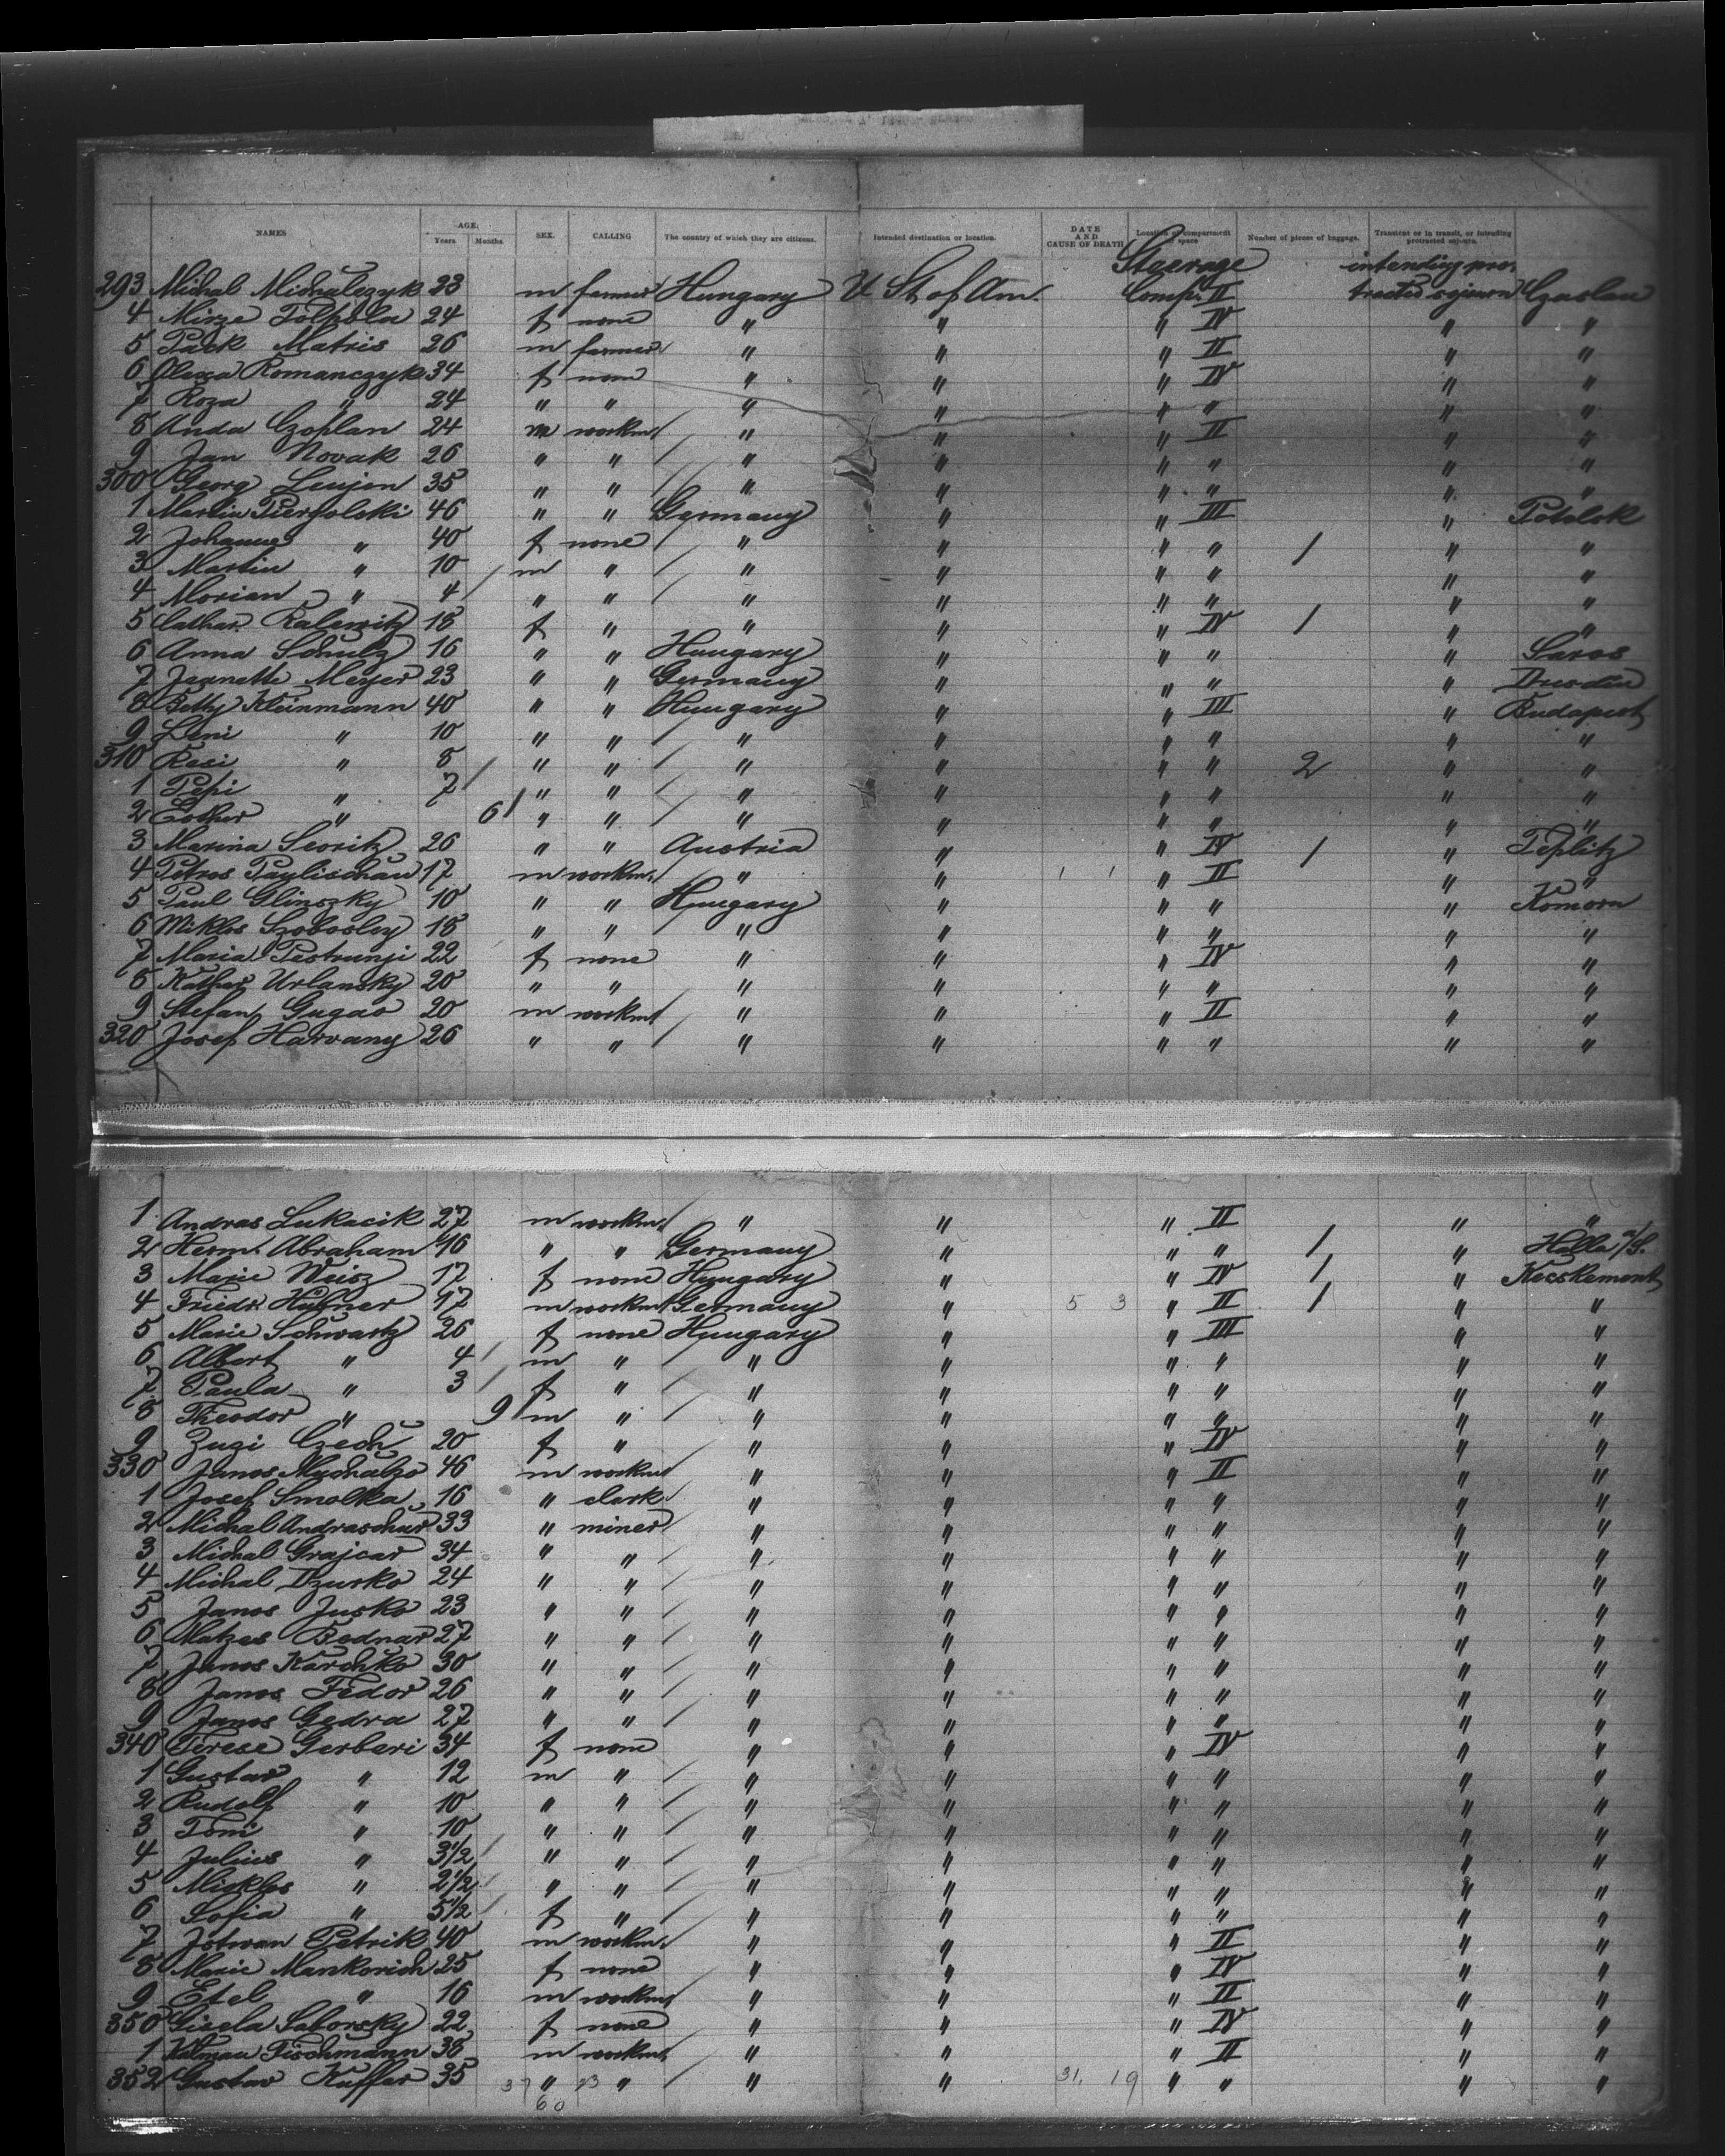 NAMES AGE. Years Months SEX. CALLING The country of which they are citizens. Intended destination or location. DATE AND CAUSE OF DEATH Location of compartment or space Number of pieces of baggage. Transient or in transit, or intending protracted sojourn.
Steerage intending pro-
293 Michal Michalczyk 23 m farmer Hungary U. St of Am. Comp. II tracted sojourn Czaslau
4 Mirze 24 f none " " " IV " "
5 Pack Matris 26 m farmer " " " II " "
6 Olexa Romanczyk 34 f none " " " IV " "
7 Roza " 24 " " " " " " " "
8 Anda Czoplan 24 m workm " " " II " "
9 Jan Novak 26 " " " " " " " "
300 Georg Leujon 35 " " " " " " " "
1 Martin Piergolski 46 " " Germany " " III "
2 Johanna " 40 f none " " " " 1 " "
3 Martin " 10 m " " " " " " "
4 Morian " 4 " " " " " " " "
5 Cathar. Kalewitz 18 f " " " " IV 1 " "
6 Anna Schulz 16 " " Hungary " " " " Saros
7 Jeanette Meyer 23 " " Germany " " " " Dresden
8 Betty Kleinmann 40 " " Hungary " " III " Budapest
9 Leni " 10 " " " " " " " "
310 Resi " 8 " " " " " " 2 " "
1 Pepi " 7 " " " " " " " "
2 Esther " 6 " " " " " " " "
3 Marina Seoritz 26 " " Austria " " IV 1 " Teplitz
4 Petros Paylischau 17 m workm. " " 1 1 " II " "
5 Paul Glinszky 10 " " Hungary " " " " Komorn
6 Miklos Szobosley 18 " " " " " " " "
7 Maria Pestrunji 22 f none " " " IV " "
8 Kathar Urlansky 20 " " " " " " " "
9 Stefan Gugas 20 m workm " " " II " "
320 Josef Harvany 26 " " " " " " " "
1 Andras Lukacik 27 m workm. " " " II " "
2 Herm. Abraham 16 " " Germany " " " 1 " Halle a/S.
3 Marie Weisz 17 f none Hungary " " IV 1 " Kecskemont
4 Friedr. Hübner 17 m workm Germany " 5 3 " II 1 " "
5 Marie Schwartz 26 f none Hungary " " III " "
6 Albert " 4 m " " " " " " "
7 Paula " 3 f " " " " " " "
8 Theodor " 9 m " " " " " " "
9 Zuzi Czech 20 f " " " " IV " "
330 Janos Muchalzo 46 m workm " " " II " "
1 Josef Smolka 16 " clerk " " " " " "
2 Michal Andraschur 33 " miner " " " " " "
3 Michal Grajcar 34 " " " " " " " "
4 Michal Dzurko 24 " " " " " " " "
5 Janos Jusko 23 " " " " " " " "
6 Matzes Bednar 27 " " " " " " " "
7 Janos Karchko 30 " " " " " " " "
8 Janos Fedor 26 " " " " " " " "
9 Janos Gedra 27 " " " " " " " "
340 Terese Gerberi 34 f none " " " IV " "
1 Gustav " 12 m " " " " " " "
2 Rudolf " 10 " " " " " " " "
3 Toni " 10 " " " " " " " "
4 Julius " 3½ " " " " " " " "
5 Micklos " 2½ " " " " " " " "
6 Sofia " 5½ f " " " " " " "
7 Jstwan Petrik 40 m workm. " " " II " "
8 Marie Mankovich 25 f none " " " IV " "
9 Etel " 16 m workm " " " II " "
350 Gisela Saborsky 22 f none " " " IV " "
1 Kalman Fischmann 38 m workm. " " " II " "
352 Gustav Kuffer 35 37 " 23 " " " 31. 19 " " " "
60